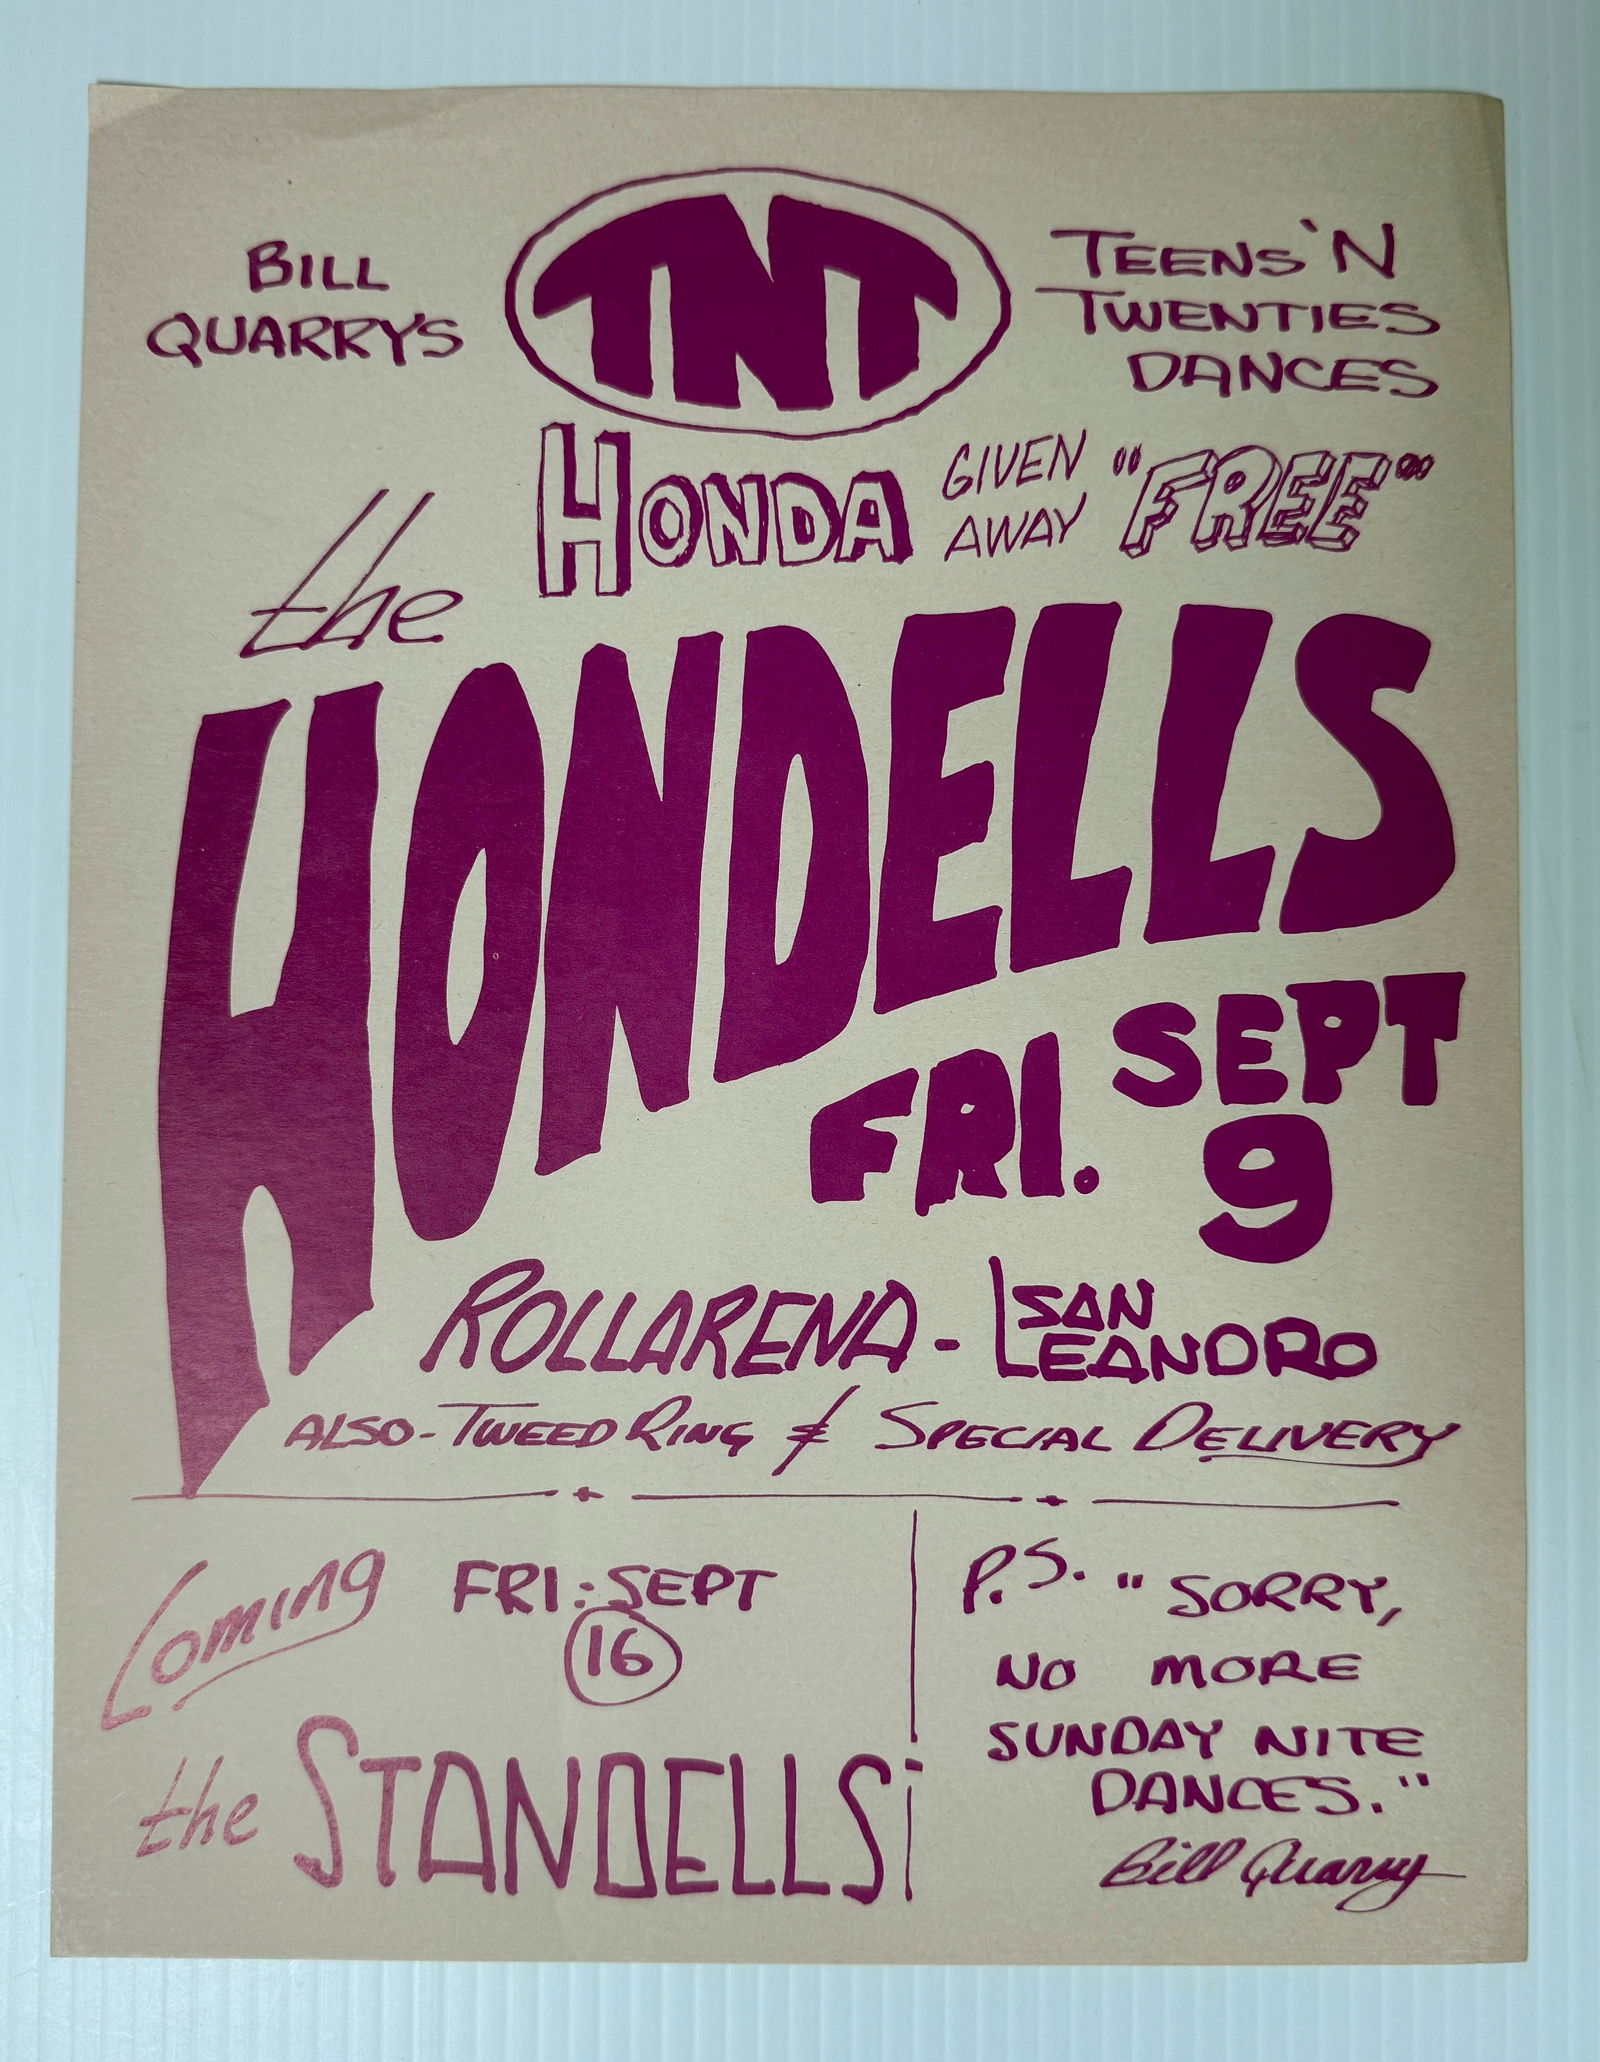 BILL
QUARRYS
TNT
TEENS 'N
TWENTIES
DANCES
HONDA GIVEN
AWAY "FREE"
the
HONDELLS
FRI. SEPT
9
ROLLARENA - SAN
LEANDRO
ALSO - TWEED RING & SPECIAL DELIVERY
Coming FRI: SEPT
16
the STANDELLS
P.S. "SORRY,
NO MORE
SUNDAY NITE
DANCES."
Bill Quarry